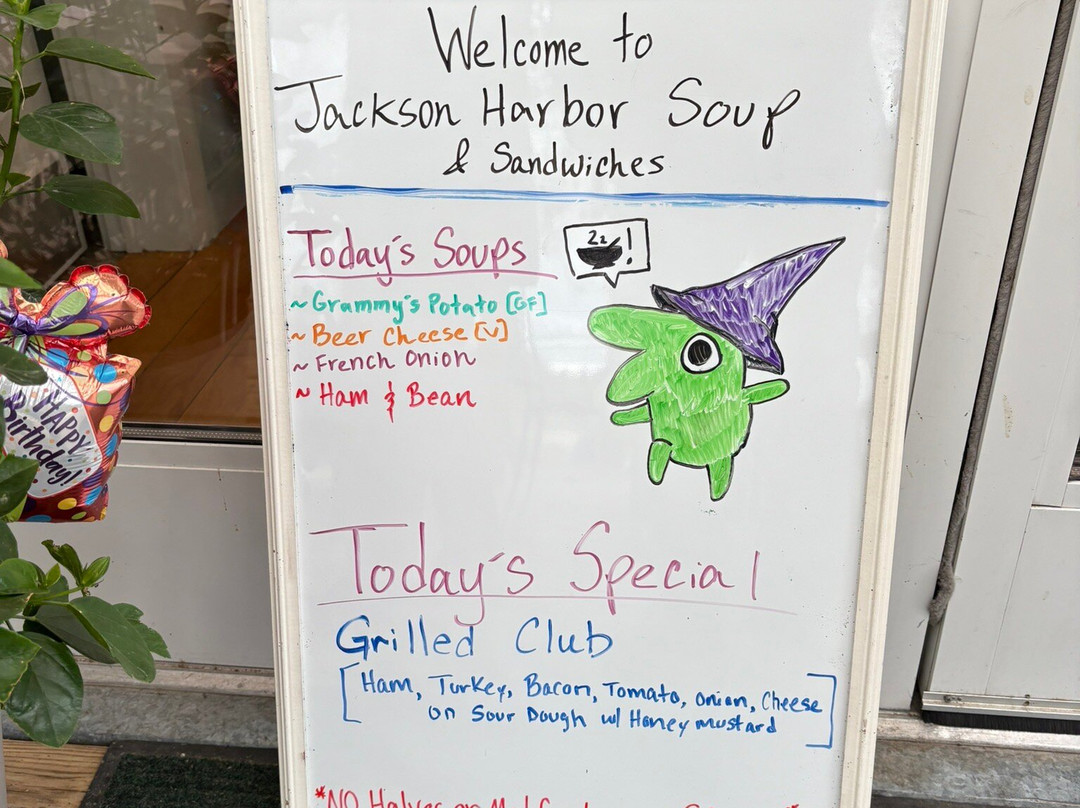 Welcome to
Jackson Harbor Soup
& Sandwiches
Today's Soups
~ Grammy's Potato [GF]
~ Beer Cheese [V]
~ French Onion
~ Ham & Bean
!
Today's Special
Grilled Club
[Ham, Turkey, Bacon, Tomato, Onion, Cheese
on Sour Dough w/ Honey mustard]
*NO Halves on
HAPPY
Birthday!